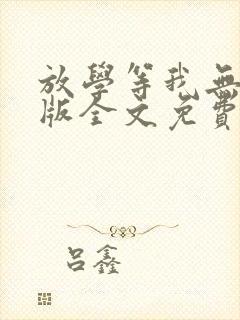 放學等我無
版全文免費
呂鑫